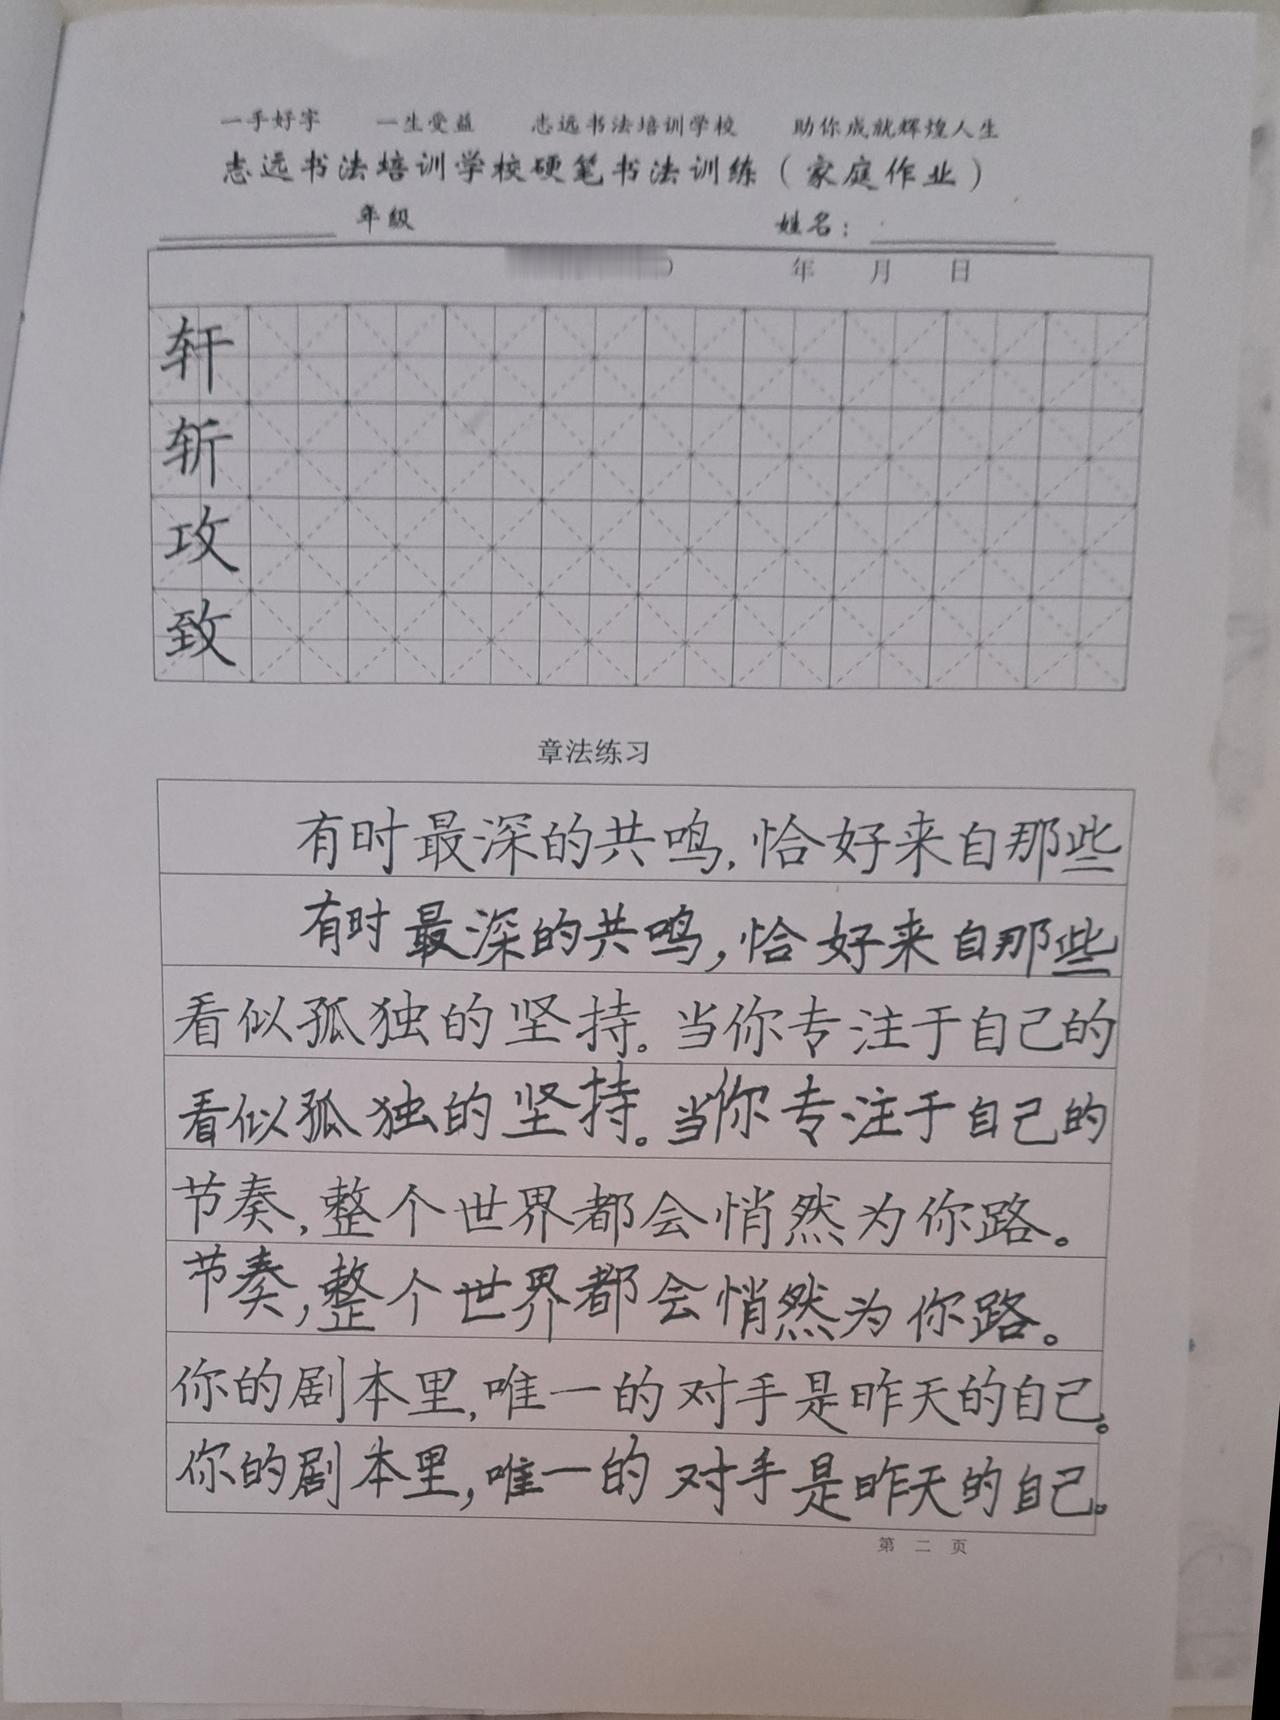 一手好字 一生受益 志远书法培训学校 助你成就辉煌人生
志远书法培训学校硬笔书法训练（家庭作业）
年级 姓名：
） 年 月 日
轩
斩
攻
致
章法练习
有时最深的共鸣，恰好来自那些
有时最深的共鸣，恰好来自那些
看似孤独的坚持。当你专注于自己的
看似孤独的坚持。当你专注于自己的
节奏，整个世界都会悄然为你路。
节奏，整个世界都会悄然为你路。
你的剧本里，唯一的对手是昨天的自己。
你的剧本里，唯一的对手是昨天的自己。
第 二 页